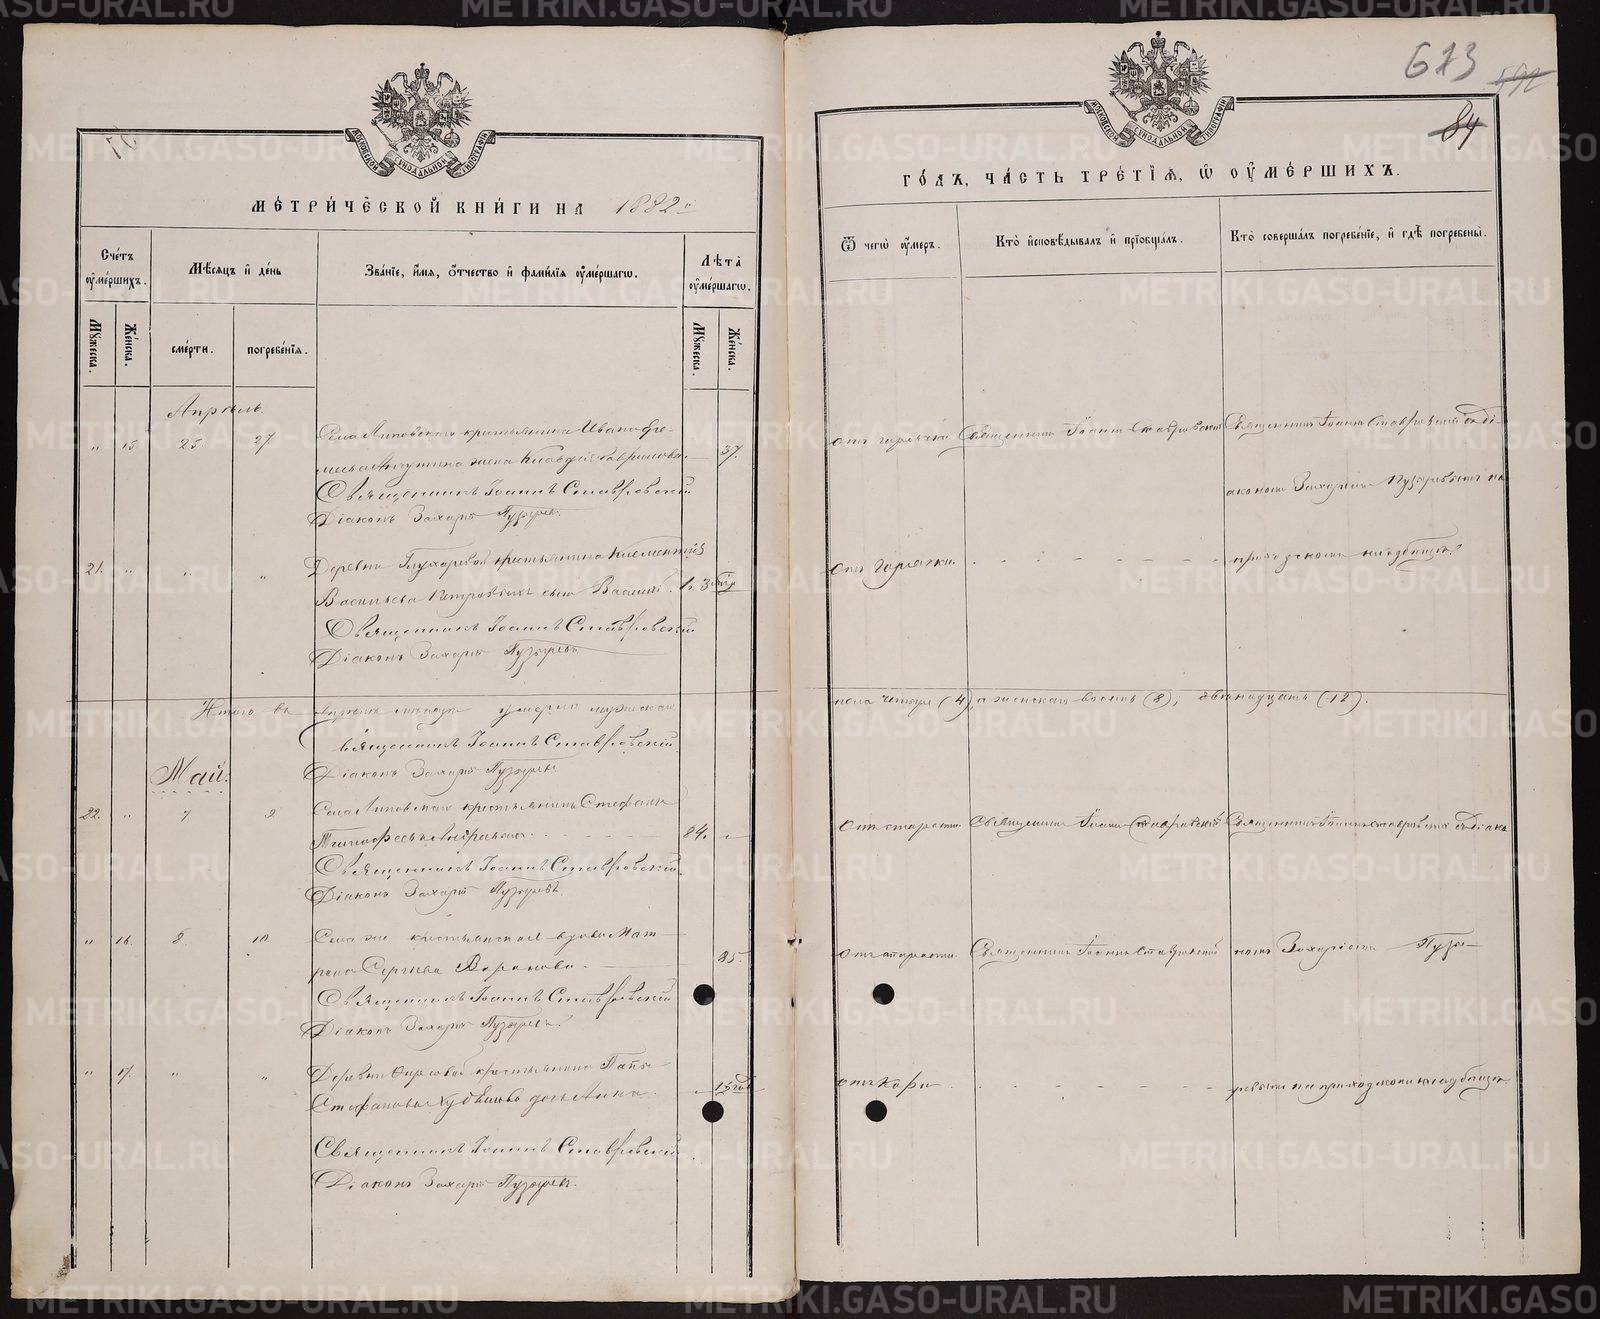 МЕТРИЧЕСКОЙ КНИГИ НА 1882й
Счетъ умершихъ.
Мужеска.
Женска.
Мѣсяцъ и день
смерти.
погребенія.
Званіе, имя, отчество и фамилія умершаго.
Лѣта умершаго.
Мужеска.
Женска.
Апрѣль.
" 15. 25. 27. Села Липовскаго крестьянина Ивана Ефре-
жена Клавдія Гаврилова. 37.
Священникъ Іоаннъ Ставровскій
Діаконъ Захарій Пузыревъ.
21. " " " Деревни Глухаревой крестьянина Климентія
Васильева сынъ Василій.
Священникъ Іоаннъ Ставровскій
Діаконъ Захарій Пузыревъ
Итого въ мѣсяцѣ умерло мужескаго
Священникъ Іоаннъ Ставровскій
Діаконъ Захарій Пузыревъ
Май.
22. " 7 9 Села Липовскаго крестьянинъ Стефанъ
84. "
Священникъ Іоаннъ Ставровскій.
Діаконъ Захарій Пузыревъ.
" 16. 8. 10. Села же крестьянская вдова Мат-
рона Сергѣева 85.
Священникъ Іоаннъ Ставровскій
Діаконъ Захарій Пузыревъ.
" 17. " " Деревни крестьянина
Стефанова дочь Анна.
Священникъ Іоаннъ Ставровскій.
Діаконъ Захарій Пузыревъ.
МОСКОВСКОЙ СѴНОДАЛЬНОЙ ТИПОГРАФІИ
613
84
ГОДЪ, ЧАСТЬ ТРЕТІЯ, Ѡ УМЕРШИХЪ.
Ѿ чего умеръ.
Кто исповѣдывалъ и пріобщалъ.
Кто совершалъ погребеніе, и гдѣ погребены.
отъ горячки. Священникъ Іоаннъ Ставровскій Священникъ Іоаннъ Ставровскій съ ді-
акономъ Захаріемъ Пузыревымъ на
отъ горячки. приходскомъ кладбищѣ.
пола четыре (4) а женскаго восемь (8); двѣнадцать (12).
отъ старости. Священникъ Іоаннъ Ставровскій Священникъ Іоаннъ Ставровскій съ діако-
отъ старости. Священникъ Іоаннъ Ставровскій номъ Захаріемъ Пузы-
отъ кори ревымъ на приходскомъ кладбищѣ.
METRIKI.GASO-URAL.RU